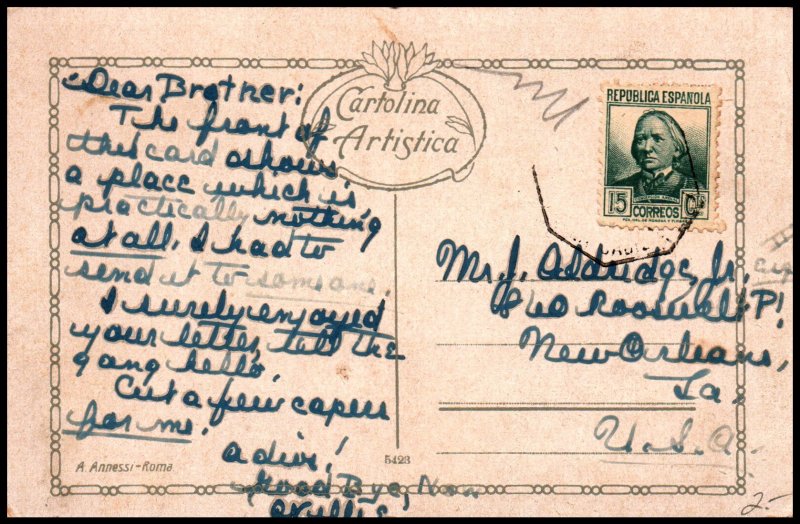 Dear Brother:
The front of
this card shows
a place which is
practically nothing
at all. I had to
send it to someone.
I surely enjoyed
your letter, tell the
gang hello.
Cut a few capers
for me.
adios!
Good Bye, Now
A. Annessi-Roma
Cartolina
Artistica
5423
REPUBLICA ESPAÑOLA
15 Cts
CORREOS
Mr. J. Aldridge, Jr.
840 Roosevelt Pl
New Orleans,
La.
U.S.A.
2.-